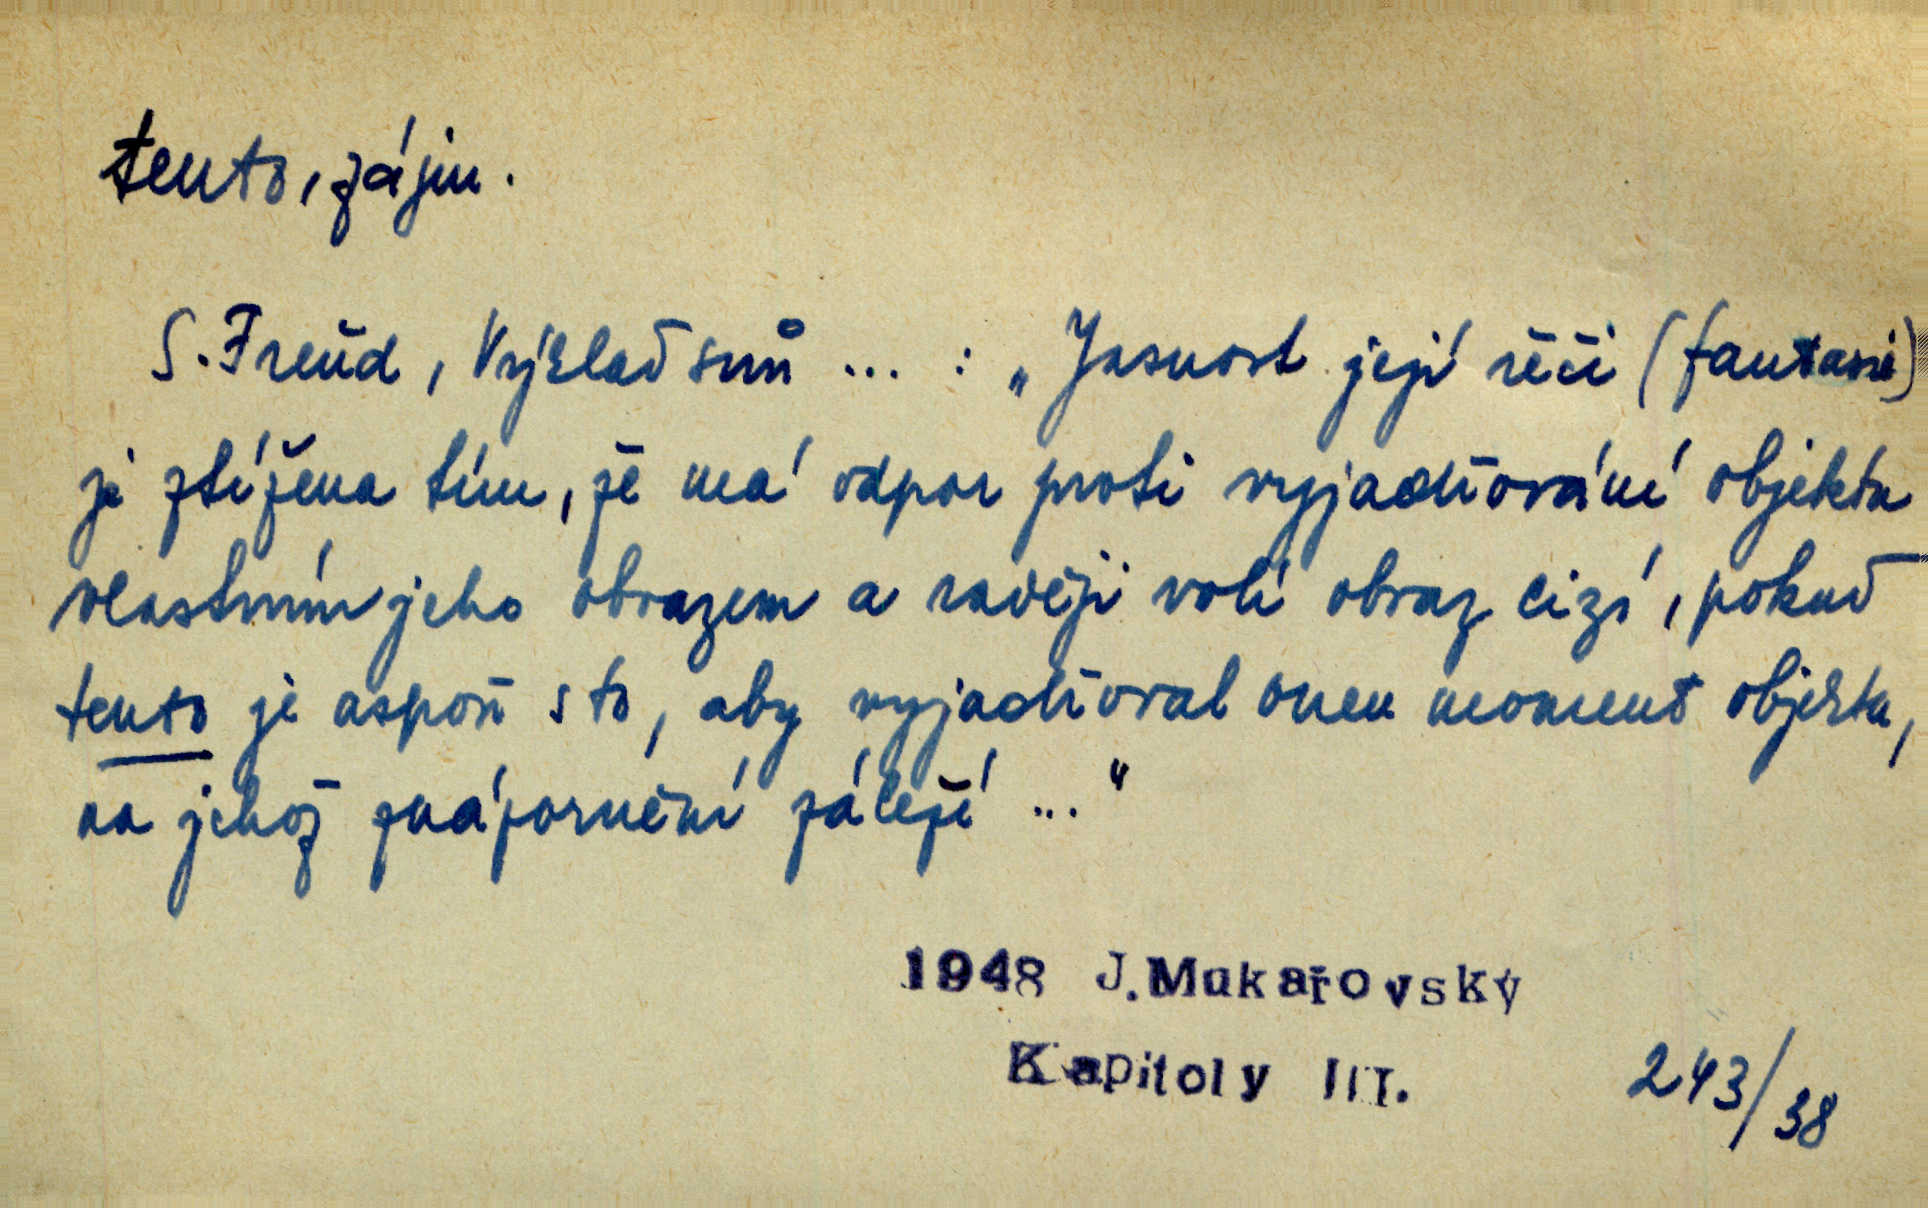 tento, zájm.
S. Freud, Výklad snů ... : „Jasnost její řeči (fantasie)
je ztížena tím, že má odpor proti vyjadřování objektu
vlastním jeho obrazem a raději volí obraz cizí, pokud
tento je aspoň s to, aby vyjadřoval onen moment objektu,
na jehož znázornění záleží ..."
1948 J. Mukařovský
Kapitoly III. 243/38